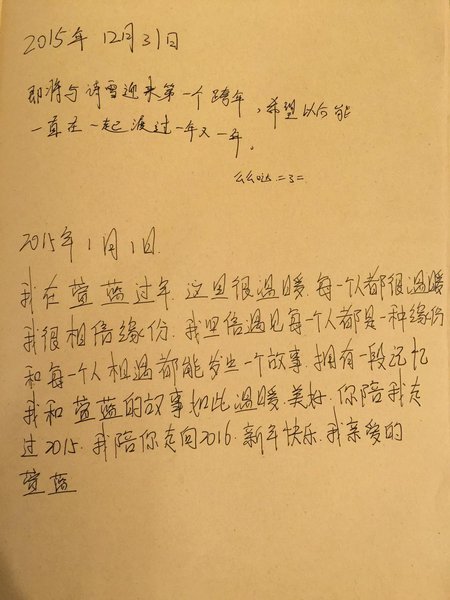 2015年 12月31日
即将与诗雪迎来第一个跨年,希望以后能
一直在一起渡过一年又一年。
么么哒 =3=
2015年1月1日.
我在萱蓝过年.这里很温暖.每一个人都很温暖
我很相信缘份.我坚信遇见每一个人都是一种缘份
和每一个人相遇都能发生一个故事.拥有一段记忆
我和萱蓝的故事如此温暖.美好.你陪我走
过2015.我陪你走向2016.新年快乐.我亲爱的
萱蓝